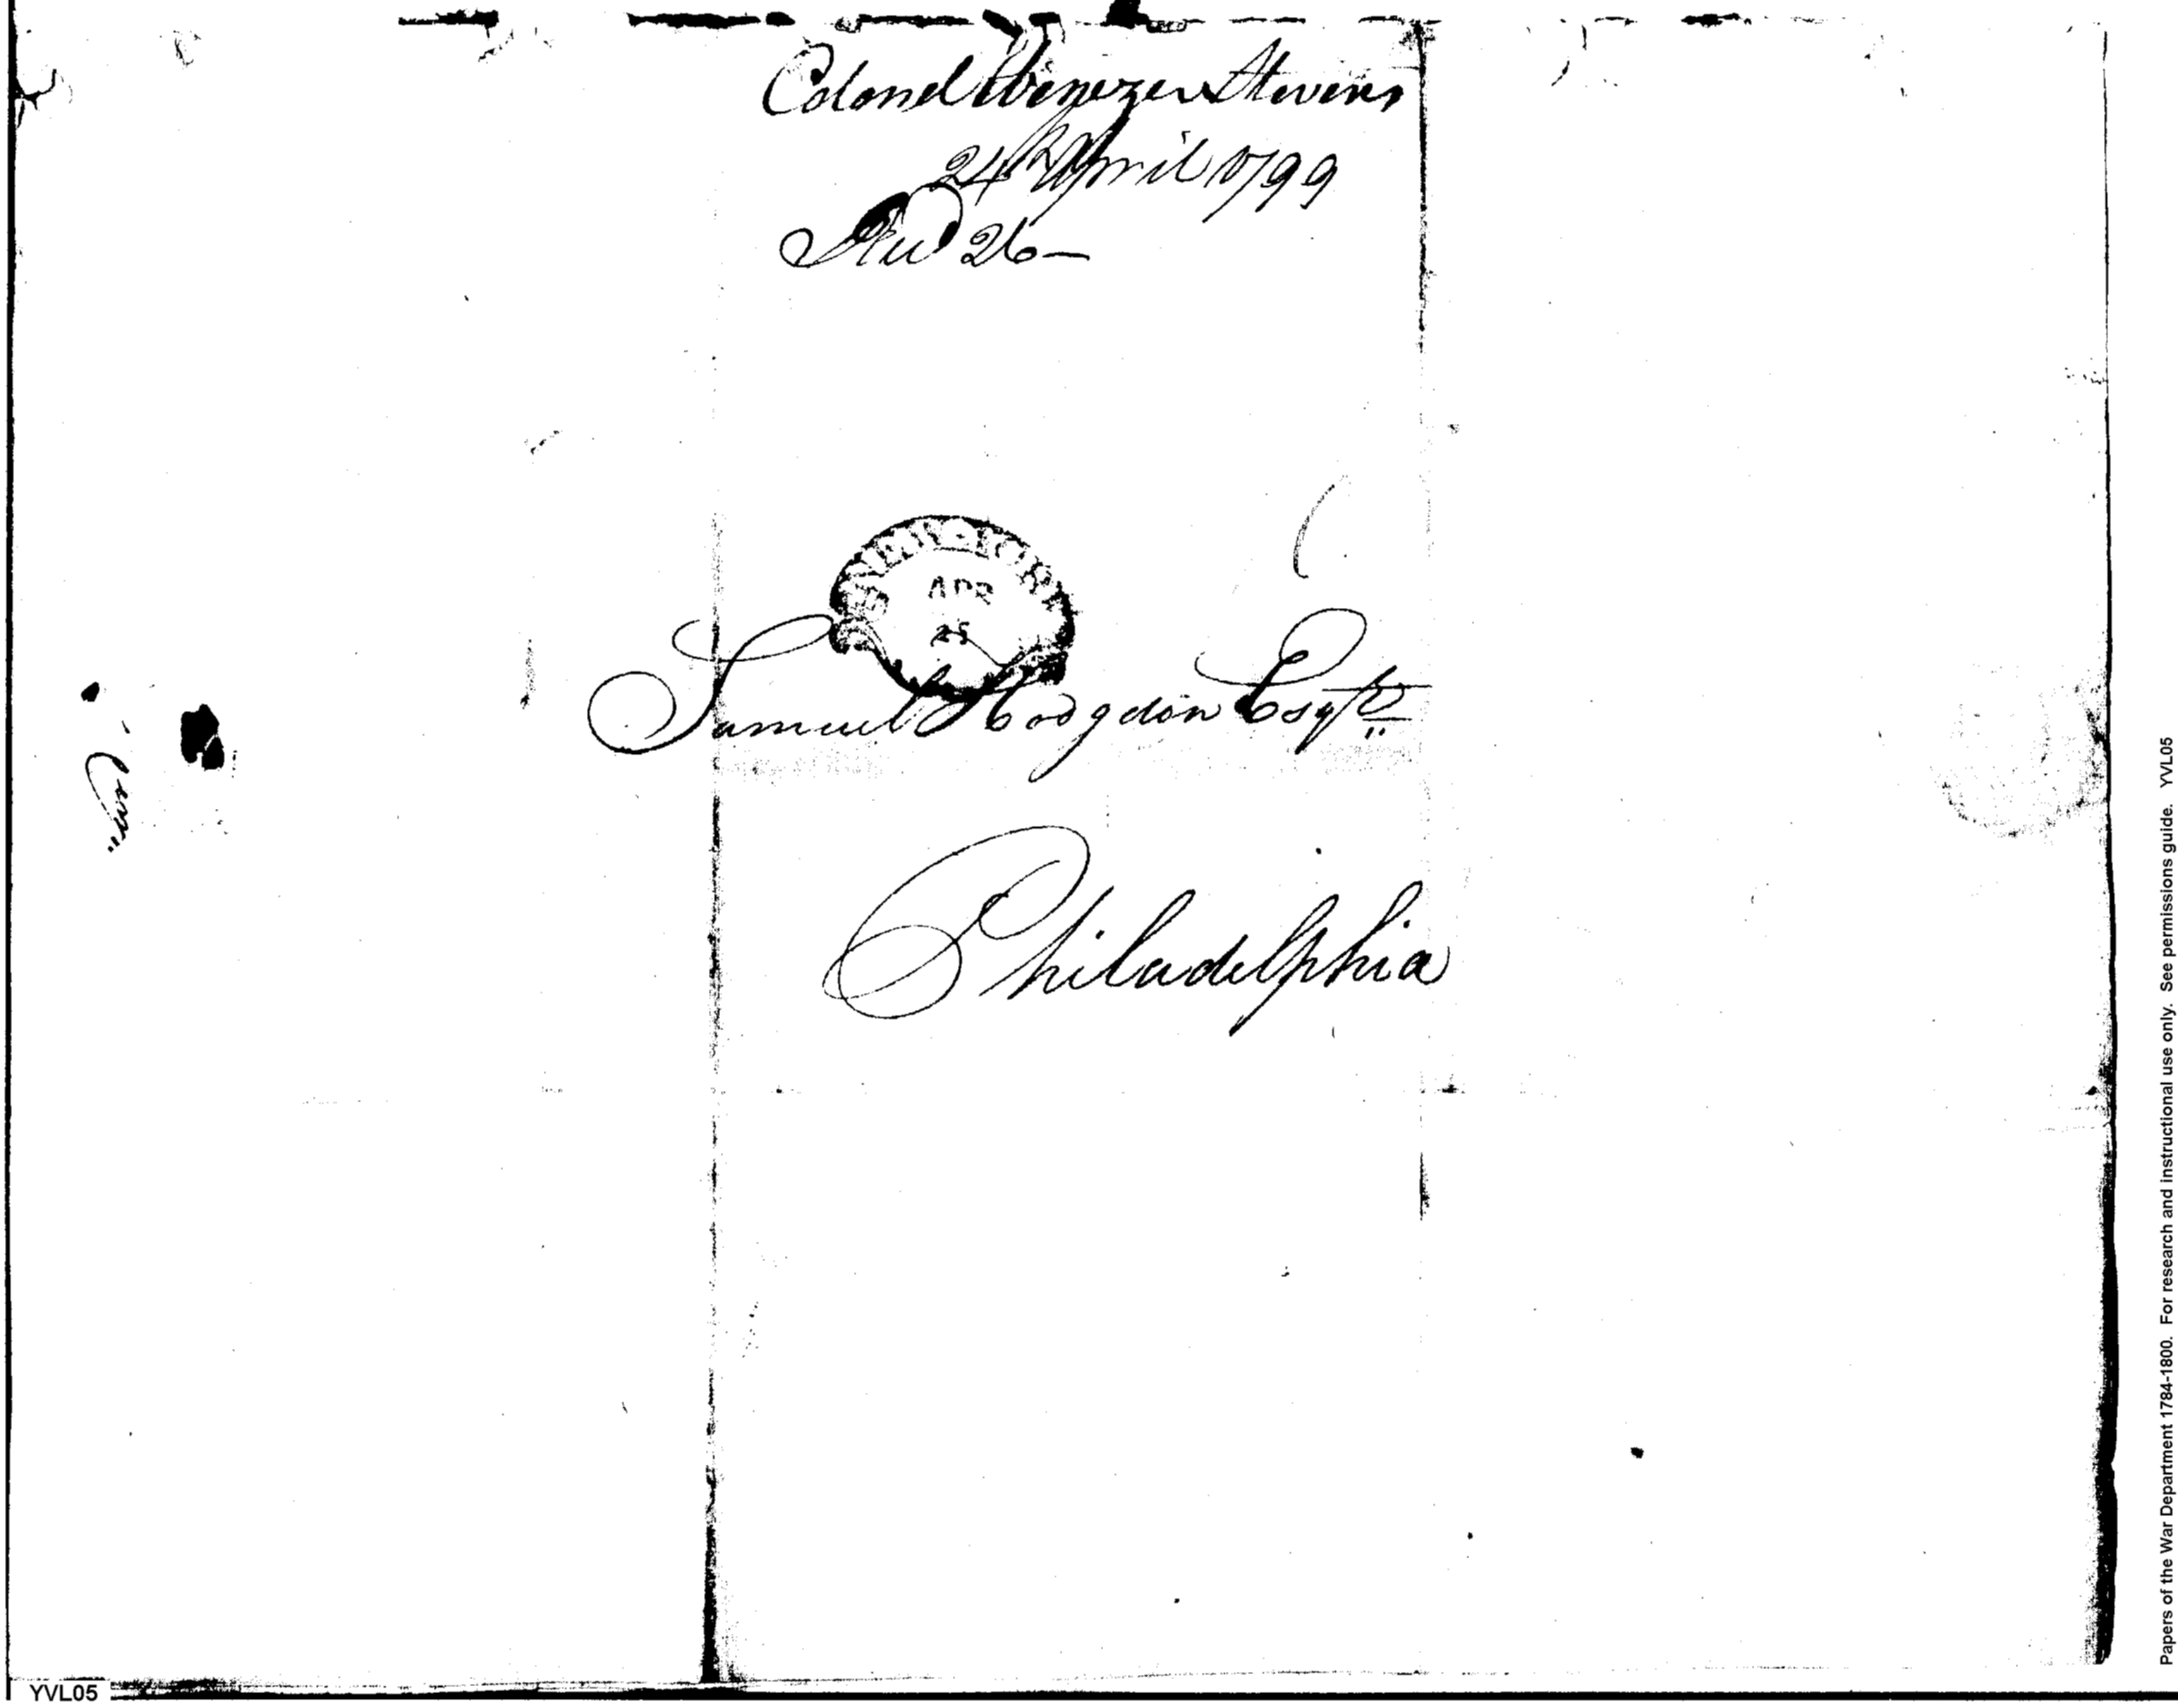 Colonel Ebenezer Stevens
24th April 1799
Recd 26—
APR
25
Samuel Hodgdon Esqr.
Philadelphia
YVL05
Papers of the War Department 1784-1800. For research and instructional use only. See permissions guide. YVL05